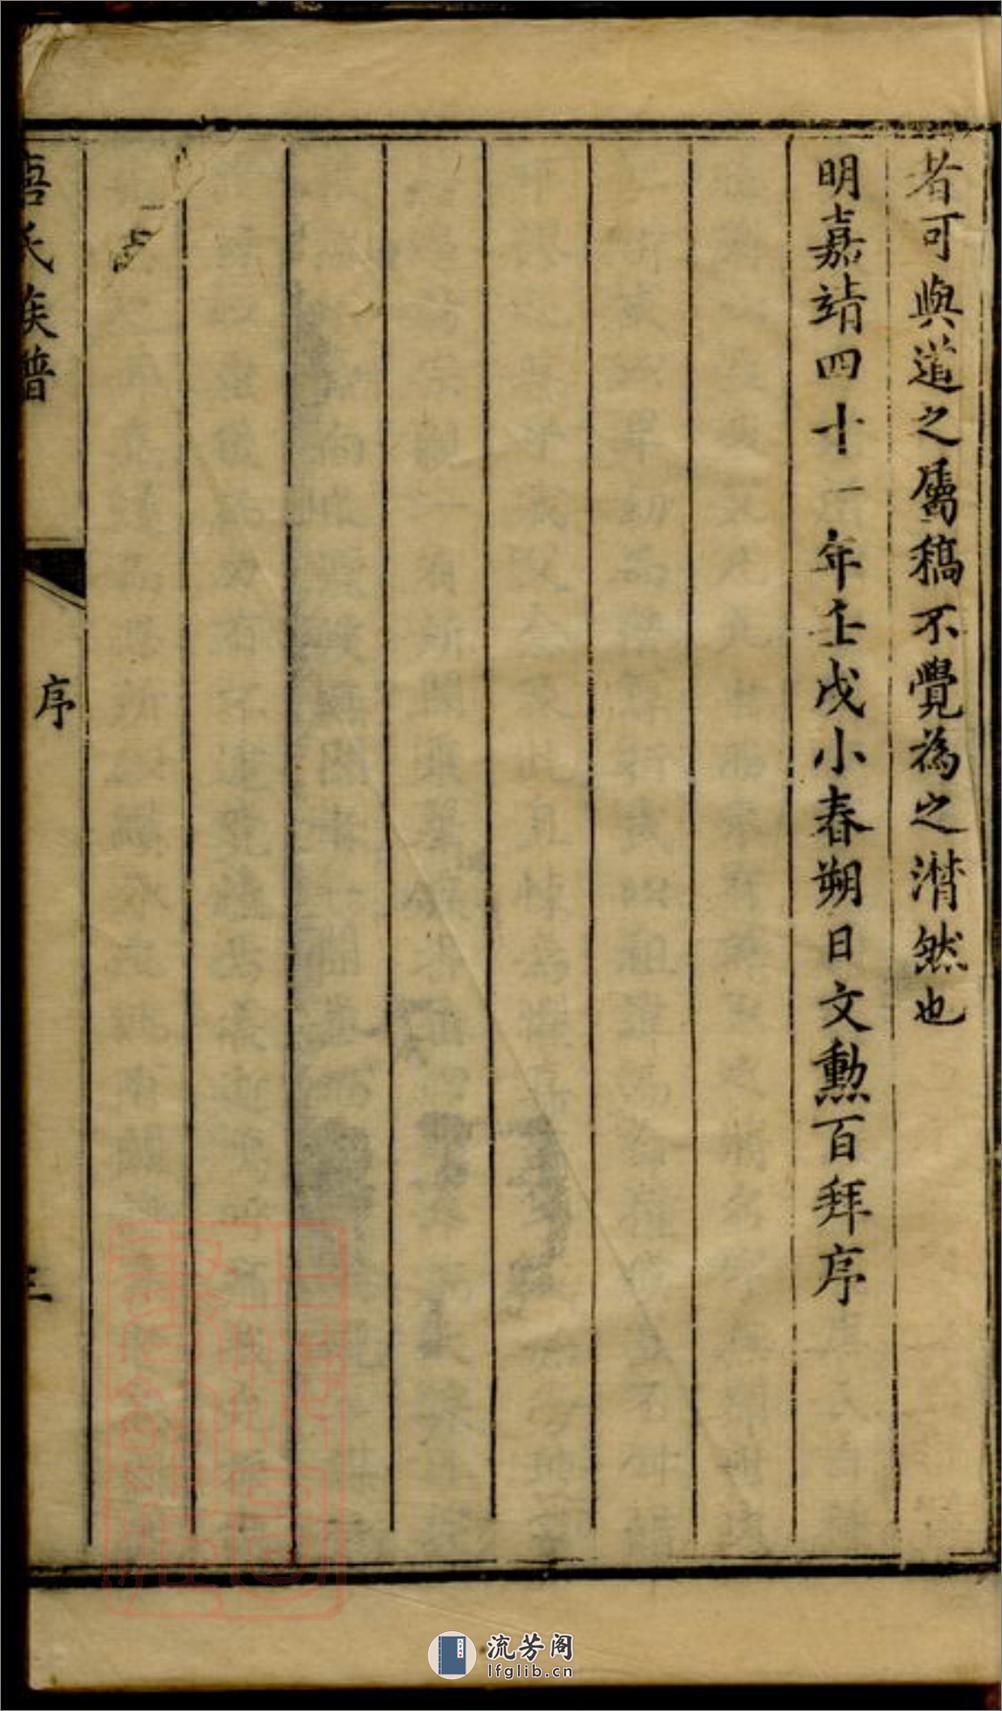 者可與道之屬稿不覺為之潸然也
明嘉靖四十一年壬戌小春朔日文勳百拜序
氏族譜
序
三
流芳阁
lfglib.cn